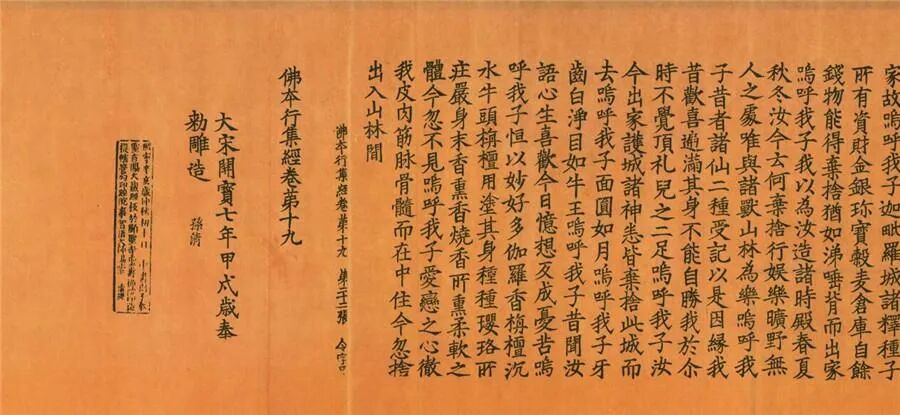 家故嗚呼我子迦毗羅城諸釋種子
所有資財金銀珎寶穀麦倉庫自餘
錢物能得棄捨猶如涕唾背而出家
嗚呼我子我以為汝造諸時殿春夏
秋冬汝今去何棄捨行娛樂曠野無
人之處唯與諸獸山林為樂嗚呼我
子昔者諸仙二種受記以是因緣我
昔歡喜遍滿其身不能自勝我於尒
時不覺頂礼兒之二足嗚呼我子汝
今出家護城諸神悉皆棄捨此城而
去嗚呼我子面圓如月嗚呼我子牙
齒白淨目如牛王嗚呼我子昔聞汝
語心生喜歡今日憶想反成憂苦嗚
呼我子恒以妙好多伽羅香栴檀沉
水牛頭栴檀用塗其身種種瓔珞所
莊嚴身末香熏香燒香所熏柔軟之
體今忽不見嗚呼我子愛戀之心徹
我皮肉筋脉骨髓而在中住今忽捨
出入山林間
佛本行集經卷第十九 第二十二張 令字号
佛本行集經卷第十九
大宋開寶七年甲戌歲奉
勑雕造 孫清
熙寧辛亥歲仲秋初十日中書劄子奉